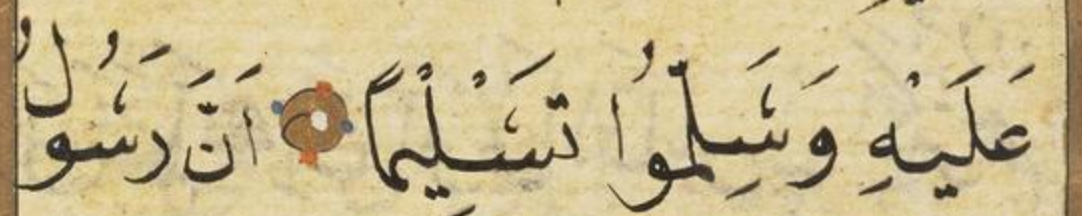 عَلَيْهِ وَسَلِّمُوا تَسْلِيْمًا اَنَّ رَسُولُ